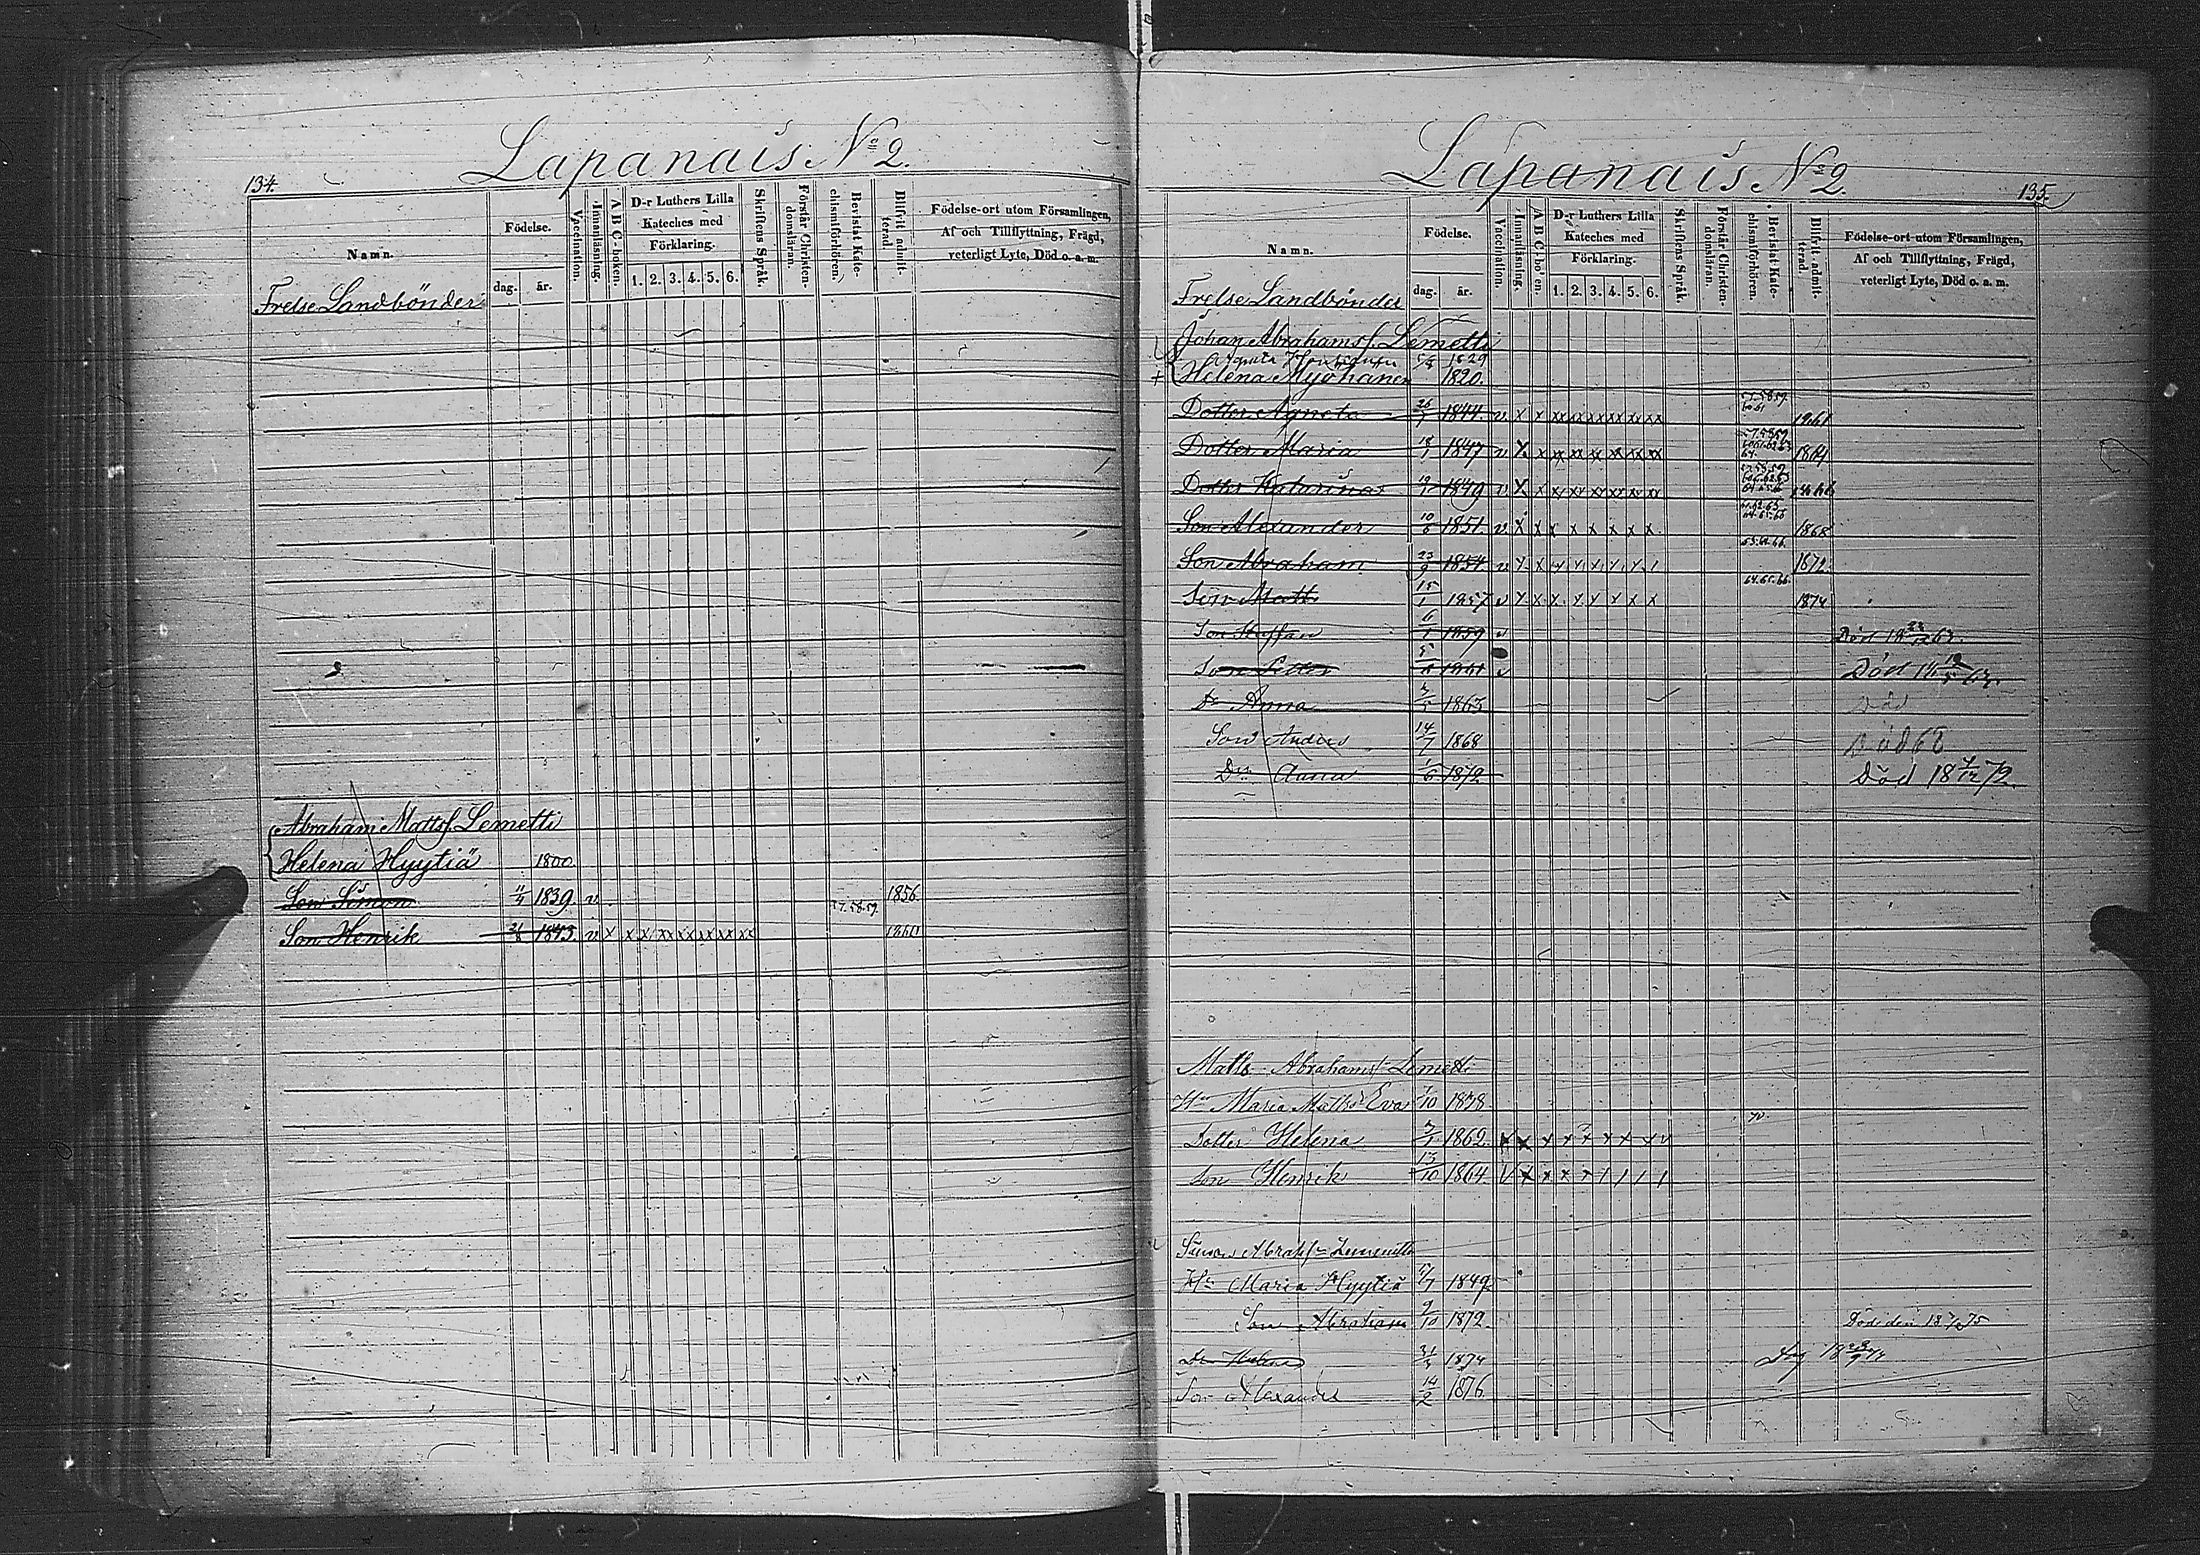 134.
Lapanais No 2.
Namn.
Födelse.
dag.
år.
Vaccination.
Innanläsning.
A B C-boken.
D-r Luthers Lilla
Kateches med
Förklaring.
1. 2. 3. 4. 5. 6.
Skriftens Språk.
Förstår Christen-
domsläran.
Bevistat Kate-
chismiförhören.
Blifvit admit-
terad.
Födelse-ort utom Församlingen,
Af och Tillflyttning, Frägd,
veterligt Lyte, Död o. a. m.
Frelse Landbönder
Abraham Mattsf. Lemetti
Helena Hyytiä 1800
Son Simon 11/4 1839. v 1856.
57.58.59.
Son Henrik 1843. v x x x xx xx xx xx xx 1860
135.
Lapanais No 2.
Namn.
Födelse.
dag.
år.
Vaccination.
Innanläsning.
A B C-boken.
D-r Luthers Lilla
Kateches med
Förklaring.
1. 2. 3. 4. 5. 6.
Skriftens Språk.
Förstår Christen-
domsläran.
Bevistat Kate-
chismiförhören.
Blifvit admit-
terad.
Födelse-ort utom Församlingen,
Af och Tillflyttning, Frägd,
veterligt Lyte, Död o. a. m.
Frelse Landbönder
Johan Abrahamsf. Lemetti
Agneta 1829
Helena Myöhänen 1820.
Dotter Agneta 1844. v x x xx xx xx xx xx xx 57.58.59. 60.61 1861
Dotter Maria 18/1 1847 v x x xx xx xx xx xx xx 57.58.59 64. 1864
Dotter Katarina 19/1 1849 v x x xx xx xx xx xx xx 57.58.59. 64.65.66 1866
Son Alexander 10/6 1851. v x x x x x x x x 61.62.63 64.65.66 1868
Son Abraham 23/9 1854 v x x x x x x x 1872
Son Matts 15/1 1857 v x x x x x x x x 64.65.66. 1874
Son Staffan 11/1 1859 v Död 18 63.
Son Petter 1861 v Död 18 63.
Dr Anna 1863 Död
Son Anders 14/7 1868 Död 68
Dr Anna 1/6 1872 Död 18 72.
Matts Abrahamsf Lemetti
Hu Maria Matts Eva 1/10 1838
70.
Dotter Helena 1862. x x x x x x x x
Son Henrik 13/10 1864 v x x x x
Simon Abrahfn Lemetti
Hu Maria Hyytiä 17/7 1849
Son Abraham 9/10 1872 Död den 18 75
Dr Helena 1874
Son Alexander 14/2 1876